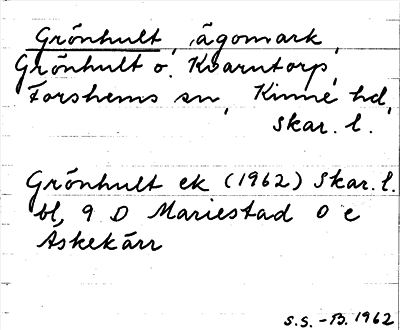 Grönhult, ägomark,
Grönhult o. Kvarntorp,
Forshems sn, Kinne hd,
Skar. l.
Grönhult ek (1962) Skar. l.
bl. 9 D Mariestad 0 c
Äskekärr
S.S. - B. 1962